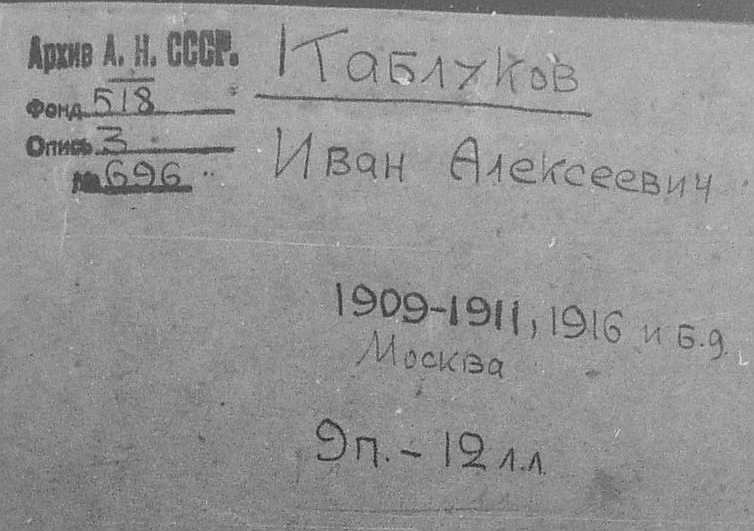 Архив А. Н. СССР.
Фонд 518
Опись 3
№ 696
Каблуков
Иван Алексеевич
1909-1911, 1916 и б.д.
Москва
9п. - 12 л.л.